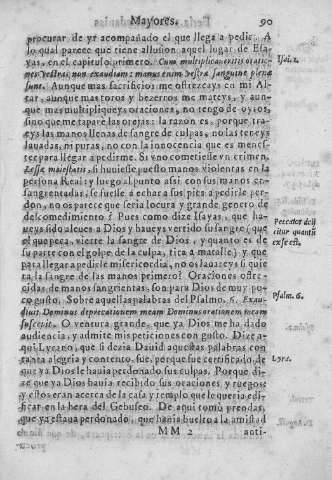 Mayores. 90
procurar de yr acompañado el que llega a pedir. A
lo qual parece que tiene allusion aquel lugar de Esa-
yas, en el capitulo primero. Cum multiplicaueritis oratio- Isai. 1.
nes vestras non exaudiam: manus enim vestræ sanguine plenæ
sunt. Aunque mas sacrificios me ofrezcays en mi Al-
tar, aunque mas toros y bezerros me mateys, y aun-
que mas multipliqueys oraciones, no tengo de oyros,
sino que me tapare las orejas: la razon es, porque tra-
eys las manos llenas de sangre de culpas, no las teneys
lauadas, ni puras, no con la innocencia que es menes-
ter para llegar a pedirme. Si vno cometiesse vn crimen
Lesæ maiestatis, si huuiesse puesto manos violentas en la
persona Real y luego al punto assi con sus manos en-
sangrentadas, se fuesse a echar a sus pies a pedirle per-
don, no os parece que seria locura y grande genero de
descomedimiento? Pues como dize Isayas, que ha- Peccador deii
ueys sido aleues a Dios y haueys vertido su sangre (que citur quantū
el que peca, vierte la sangre de Dios, y quanto es de ex se est.
su parte con el golpe de la culpa, tira a matalle) y que
para llegar a pedirle misericordia, no os lauareys si quie
ra la sangre de las manos primero? Oraciones ofre-
cidas de manos sangrientas, son para Dios de muy po-
co gusto. Sobre aquellas palabras del Psalmo. 6. Exau- Psalm. 6.
diuit Dominus deprecationem meam Dominus orationem meam
suscepit. O ventura grande, que ya Dios me ha dado
audiencia, y admite mis peticiones con gusto. Dize a-
qui Lyrano, que si dezia Dauid aquestas palabras con Lyra.
tanta alegria y contento, fue, porque fue certificado, de
que ya Dios le hauia perdonado sus culpas. Porque di-
ze que ya Dios hauia recibido sus oraciones y ruegos,
y estos eran acerca de la casa y templo que le queria edi-
ficar en la hera del Gebuseo. De aqui tomò prendas,
que ya estaua perdonado que hauia buelto a la amistad
MM 2 anti-